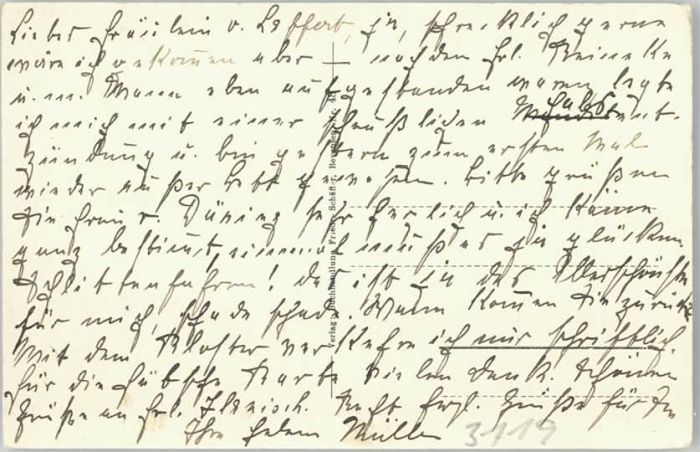 Liebes Fräulein v. Laffert, ja, schrecklich gerne
wäre ich gekommen aber — nachdem Frl. Reinecke
u. m. Mann eben aufgestanden waren legte
ich mich mit einer scheußlichen Halsent-
zündung u. bin gestern zum ersten Mal
wieder außer Bett gewesen. Bitte grüßen
Sie Frau v. Düring sehr herzlich u. ich käme
ganz bestimmt, einmal muß es ja glücken
Schlittenfahren! das ist ja das Allerschönste
für mich, schade schade. Wann kommen Sie zurück
Mit dem Kloster verkehre ich nur schriftlich.
Für die hübsche Karte vielen Dank. Schönen
Grüße an Frl. Recht herzl. Grüße für Sie
Ihre Müller
Verlag Buchhandlung Friedr.